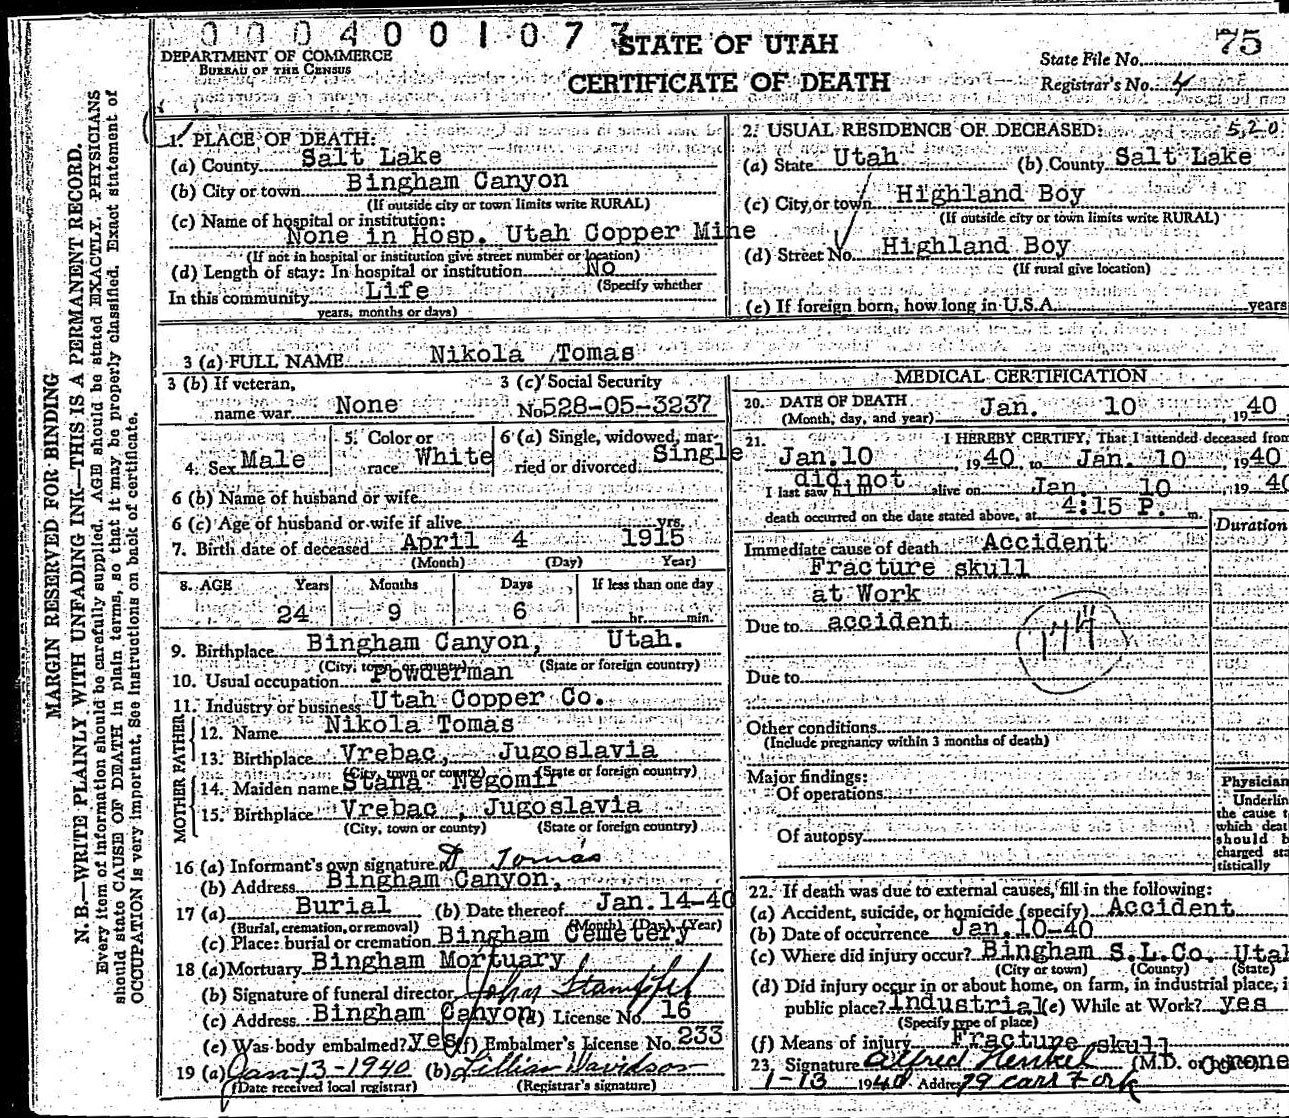 0004001073
STATE OF UTAH
CERTIFICATE OF DEATH
DEPARTMENT OF COMMERCE
BUREAU OF THE CENSUS
State File No. 75
Registrar's No. 4
MARGIN RESERVED FOR BINDING
N. B.—WRITE PLAINLY WITH UNFADING INK—THIS IS A PERMANENT RECORD.
Every item of information should be carefully supplied. AGE should be stated EXACTLY. PHYSICIANS
should state CAUSE OF DEATH in plain terms, so that it may be properly classified. Exact statement of
OCCUPATION is very important. See instructions on back of certificate.
1. PLACE OF DEATH:
(a) County Salt Lake
(b) City or town Bingham Canyon
(If outside city or town limits write RURAL)
(c) Name of hospital or institution:
None in Hosp. Utah Copper Mine
(If not in hospital or institution give street number or location)
(d) Length of stay: In hospital or institution No
(Specify whether
In this community Life
years, months or days)
2. USUAL RESIDENCE OF DECEASED: 520
(a) State Utah (b) County Salt Lake
(c) City or town Highland Boy
(If outside city or town limits write RURAL)
(d) Street No. Highland Boy
(If rural give location)
(e) If foreign born, how long in U.S.A. years
3 (a) FULL NAME Nikola Tomas
3 (b) If veteran, name war None
3 (c) Social Security No 528-05-3237
4. Sex Male 5. Color or race White 6 (a) Single, widowed, married or divorced Single
6 (b) Name of husband or wife
6 (c) Age of husband or wife if alive yrs.
7. Birth date of deceased April 4 1915
(Month) (Day) Year)
8. AGE Years Months Days If less than one day
24 9 6 hr. min.
9. Birthplace Bingham Canyon, Utah.
(City, town, or county) (State or foreign country)
10. Usual occupation Powderman
11. Industry or business Utah Copper Co.
FATHER
12. Name Nikola Tomas
13. Birthplace Vrebac, Jugoslavia
(City, town or county) (State or foreign country)
MOTHER
14. Maiden name Stana Negomir
15. Birthplace Vrebac, Jugoslavia
(City, town or county) (State or foreign country)
16 (a) Informant's own signature D. Tomas
(b) Address Bingham Canyon,
17 (a) Burial (b) Date thereof Jan.14-40
(Burial, cremation, or removal) (Month) (Day) (Year)
(c) Place: burial or cremation Bingham Cemetery
18 (a) Mortuary Bingham Mortuary
(b) Signature of funeral director John Stampfel
(c) Address Bingham Canyon (d) License No. 16
(e) Was body embalmed? yes (f) Embalmer's License No. 233
19 (a) Jan-13-1940 (b) Lillian Davidson
(Date received local registrar) (Registrar's signature)
MEDICAL CERTIFICATION
20. DATE OF DEATH Jan. 10, 1940
(Month, day, and year)
21. I HEREBY CERTIFY, That I attended deceased from
Jan.10 1940 to Jan. 10, 1940
I last saw him did not alive on Jan. 10, 1940
death occurred on the date stated above, at 4:15 P. m.
Duration
Immediate cause of death Accident
Fracture skull
at Work
Due to accident
174
Due to
Other conditions
(Include pregnancy within 3 months of death)
Major findings:
Of operations
Of autopsy
Physician
Underlin
the cause t
which deat
should b
charged sta
tistically
22. If death was due to external causes, fill in the following:
(a) Accident, suicide, or homicide (specify) Accident
(b) Date of occurrence Jan.10-40
(c) Where did injury occur? Bingham S.L.Co. Utah
(City or town) (County) (State)
(d) Did injury occur in or about home, on farm, in industrial place, i
public place? Industrial (e) While at Work? yes
(Specify type of place)
(f) Means of injury Fracture skull
23. Signature Alfred Henkel (M.D. or Corone
1-13 1940 Address 79 Carr Fork